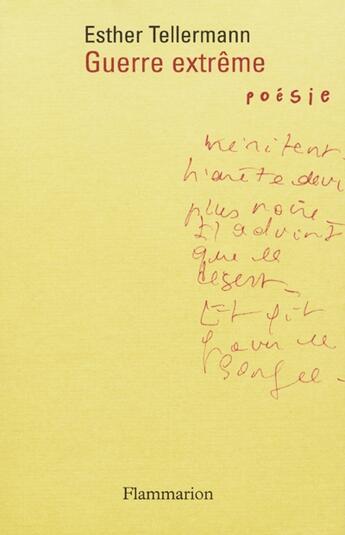 Esther Tellermann
Guerre extrême
poésie
méritent
plus noire
Il advint
que le
désert
Et fit
Flammarion